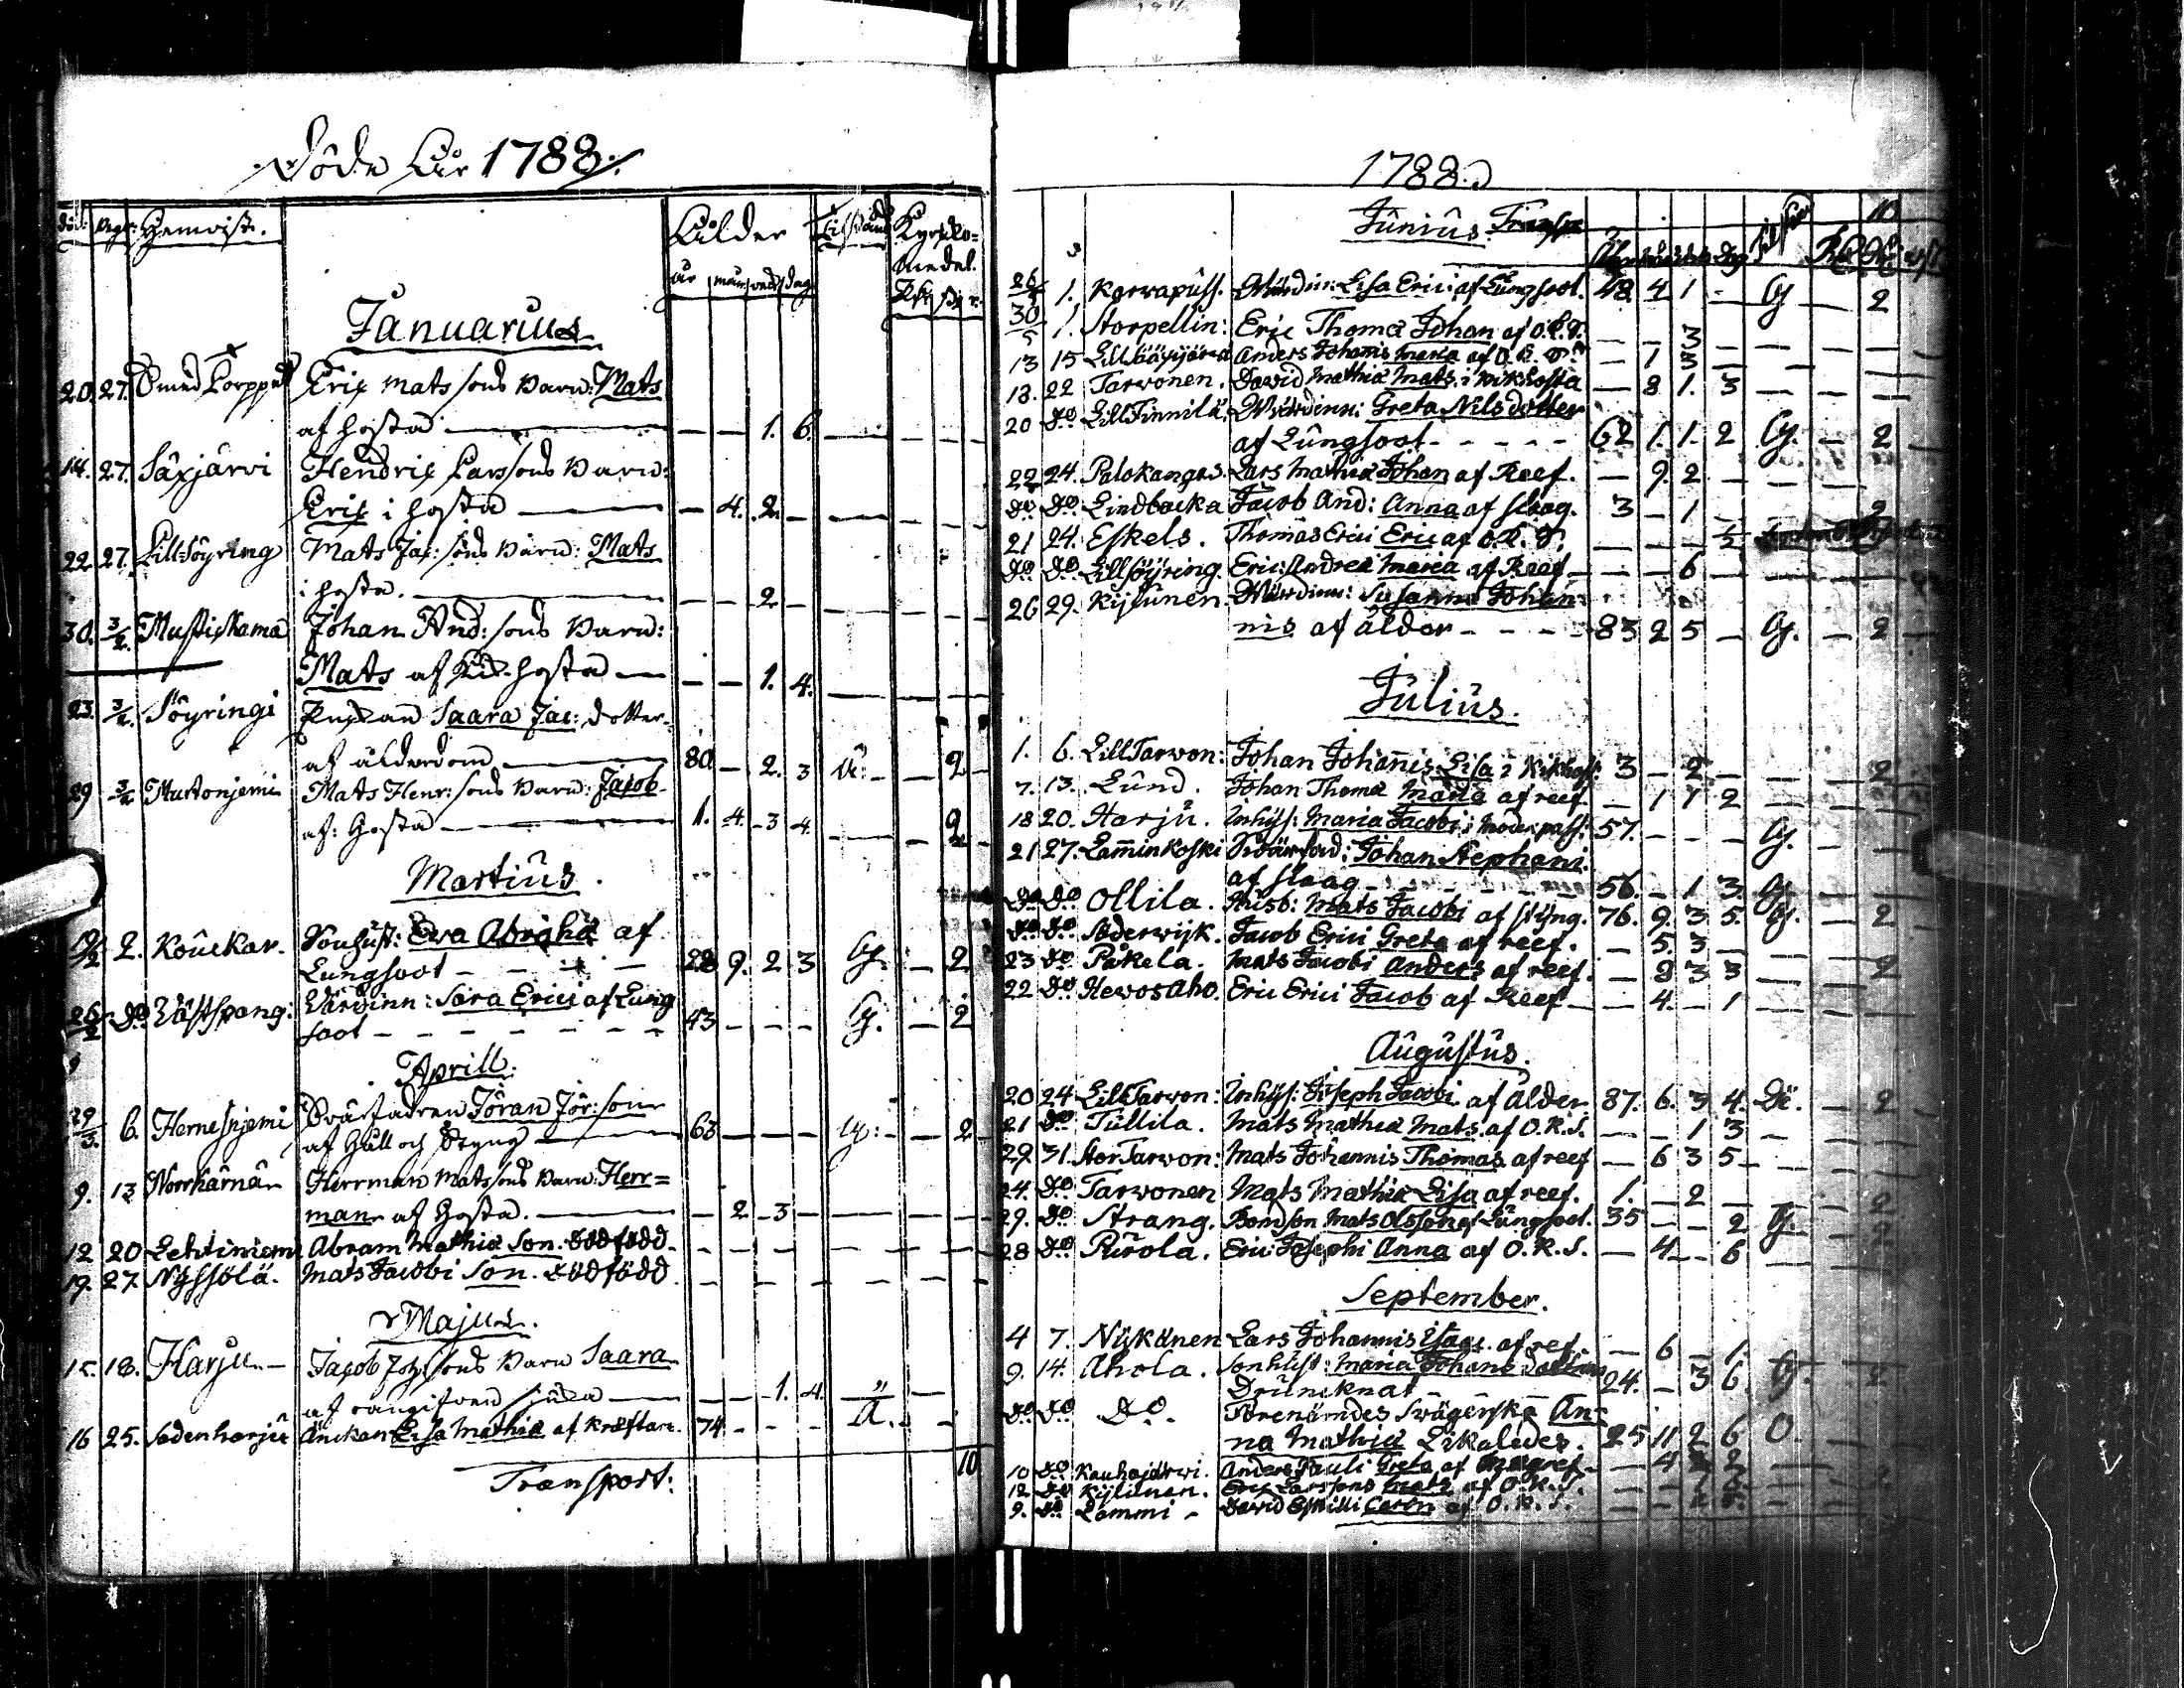 Döde Åhr 1788.
död: Begr: Hemvist. Ålder Kyrcko-
medel.
år mån: dag
Januarius
20. 27. Erik Mats sons barn: Mats
af hosta — — — 1. 6.
14. 27. Säxjärvi Hendrik Larssons barn:
Erik i hosta — — 4. 2. —
22. 27. Lill-Söyring Mats Jac: sons barn: Mats
i hosta. — — — 2. —
30. 3/2. Mustiskama Johan And: sons barn:
Mats af Kik-hosta — — — 1. 4.
23. 3/2. Söyringi Enkan Saara Jac: dotter
af ålderdom — 80 — 2. 3 — 2
29 3/2 Mats Henr: sons barn: Jacob
af: Hosta — 1. 4. 3 4. — 2
Martius.
2. Kouckar. Sonhust: Ewa Abrahä af
Lungsoot — 28 9. 2 3 G. — 2
26/2 Do Wästspang: Värdinn: Sara Erici af Lung
soot — 43 — — — G. — 2
Aprill.
29/3. 6. Hernesnjemi Svärfadren Jöran Jör: son
af Håll och Styng — 63 — — — G: — 2
9. 13 Norrkärnä Herrman Matssons barn: Herr=
man af Hosta. — — 2 3 —
12 20 Lehtiniemi Abram Mathiæ Son. dödfödd
19. 27. Nyssölä. Mats Jacobi Son. dödfödd
Majus.
15. 18. Harju — Jacob Joh: sons barn Saara
af oangifven sjuka — — — 1. 4. "
16 25. Sadenharju Änckan Lisa Mathiæ af kräftan. 74. — — — A.
Transport: 10

1788.
Junius. Transp 10
26/5 1. Korvapuss. Wärdin: Lisa Erici af Lungsoot. 48. 4 1 — G — 2
30/5 1. Storpellin: Eric Thomæ Johan af O.K.S. — — 3
13 15 Anders Johannis Maria af O.K.S. — 1 3 —
13. 22 Tarvonen. David Mathiæ Mats i Kikhosta — 8 1. 3
20 Do Lill Finnilä. Wärdinn: Greta Nils dotter
af Lungsoot 62 1. 1. 2 G. — 2
22 24. Palokangas. Lars Mathiæ Johan af Reef. — 9. 2 —
Do Do Lindbacka Jacob And: Anna af slaag. 3 — 1 — 2
21 24. Eskels. Thomas Erici Eric af O.K.S. — — — 1/2
Do Do Lillsöyring. Eric: Andreæ Maria af Reef — — — 6
26 29. Kylänen. Wärdinn: Susanna Johan=
nis af ålder 83 2 5 — G. — 2
Julius.
1. 6. Lill Tarvon: Johan Johannis Lisa i Kikhost: 3 — 2 — 2
7. 13. Lund. Johan Thomæ Maria af reef — 1 1 2
18 20. Harju. Inhys: Maria Jacobi i Moderpass: 57. — — — G.
21 27. Lamminkoski Svärfad: Johan Stephani
af slaag 56. — 1 3 G. —
Do Do Ollila. Husb: Mats Jacobi af styng. 76. 9. 3. 5. G. — 2
Do Do Söderwijk. Jacob Erici Greta af reef. — 5. 3
23 Do Påkela. Mats Jacobi Anders af reef. — 8 3 3 — 2
22 Do Hevosaho. Eric Erici Jacob af Reef — 4. — 1
Augustus.
20 24 Lill Tarvon: Inhys: Joseph Jacobi af Ålder 87. 6. 3 4. — 2
21 Do Tullila. Mats Mathiæ Mats af O.K.S. — — 1 3
29. 31. Stor Tarvon: Mats Johannis Thomas af reef — 6 3 5
24. Do Tarvonen Mats Mathiæ Lisa af reef. 1. — 2 — 2
29. Do Strang. Bondson Mats Olsson af Lungsot. 35 — — 2 G. — 2
28 Do Purola. Eric Josephi Anna af O.K.S. — 4 — 6
September.
4 7. Nykänen Lars Johannis Isaac af ref. — 6 — 1.
9. 14. Ahola. Sonhust: Maria Johans Dotter
Druncknat 24. — 3 6. G. — 2
Do Do Do. Förenämdes Svägerska An=
na Mathiæ Likaledes. 25 11 2 6 O.
10 Do Kauhajärwi. Anders Pauli Greta af — 4 2 2
12 Do Kylänen. Erik Larssons Mats af O.K.S.
9. Do Lammi — David Eskilli Carin af O.K.S.